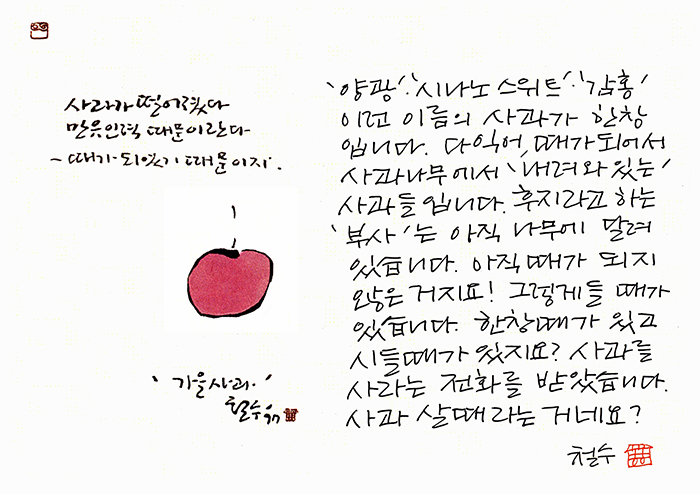 사과가 떨어졌다
만유인력 때문이란다
- 때가 되었기 때문이지.
'가을사과.'
철수
'양광'·'시나노 스위트'·'감홍'
이런 이름의 사과가 한창
입니다. 다익어, 때가 되어서
사과나무에서 '내려와 있는'
사과들입니다. 후지라고 하는
'부사'는 아직 나무에 달려
있습니다. 아직 때가 되지
않은 거지요! 그렇게들 때가
있습니다. 한창때가 있고
시들때가 있지요? 사과를
사라는 전화를 받았습니다.
사과 살때라는 거네요?
철수